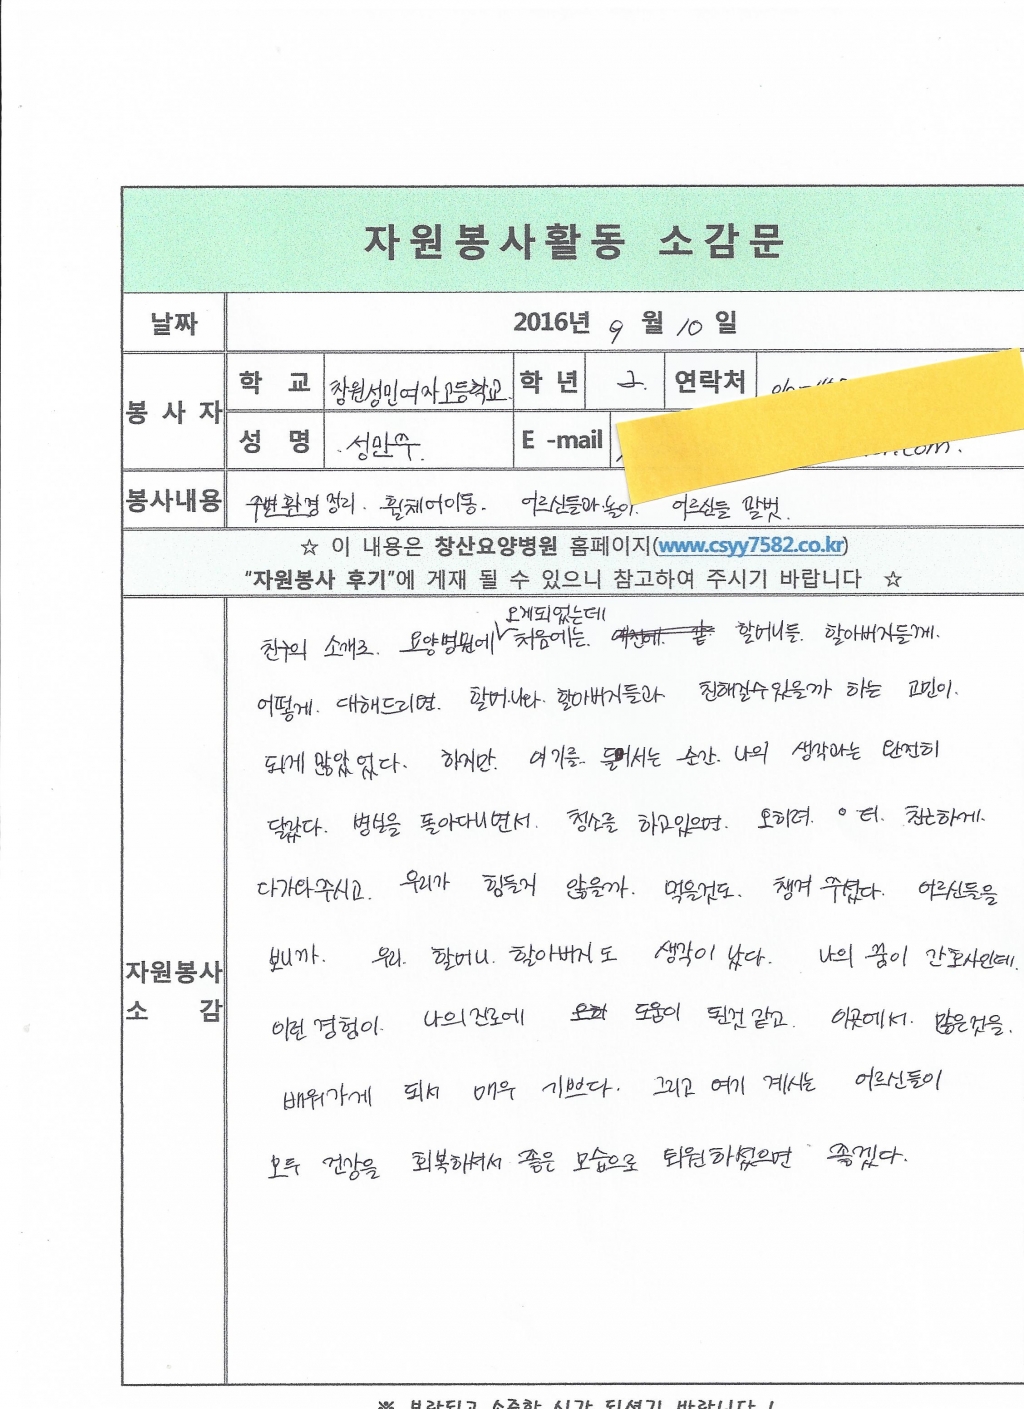 자원봉사활동 소감문
날짜 2016년 9 월 10 일
봉 사 자
학 교 창원성민여자고등학교. 학 년 2. 연락처
성 명 성만주. E -mail .com.
봉사내용 주변환경 정리. 휠체어이동. 어르신들과 놀이. 어르신들 말벗.
☆ 이 내용은 창산요양병원 홈페이지(www.csyy7582.co.kr)
"자원봉사 후기"에 게재 될 수 있으니 참고하여 주시기 바랍니다 ☆
자원봉사
소 감
오게되었는데
친구의 소개로. 요양병원에 처음에는. 할머니들. 할아버지들께.
어떻게. 대해드리면. 할머니와. 할아버지들과 친해질수있을까 하는 고민이.
되게 많았었다. 하지만. 여기를 들어서는 순간. 나의 생각과는 완전히
달랐다. 병실을 돌아다니면서. 청소를 하고있으면. 오히려. 더. 친근하게.
다가와주시고. 우리가 힘들지 않을까. 먹을것도. 챙겨 주셨다. 어르신들을
보니까. 우리. 할머니. 할아버지도 생각이 났다. 나의 꿈이 간호사인데.
이런 경험이. 나의진로에 도움이 된것 같고. 이곳에서. 많은것을.
배워가게 되서 매우 기쁘다. 그리고 여기 계시는 어르신들이
모두 건강을 회복하셔서 좋은 모습으로 퇴원하셨으면 좋겠다.